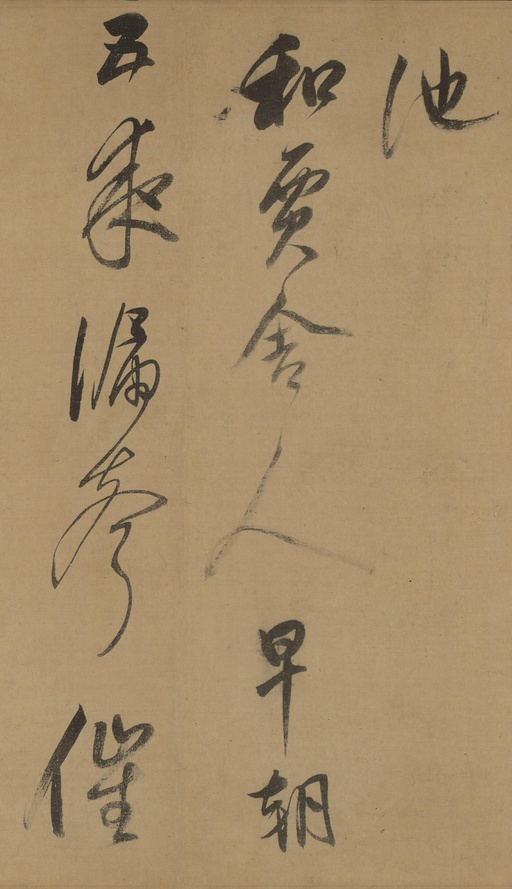 池
和賈舍人早朝
五夜漏聲催